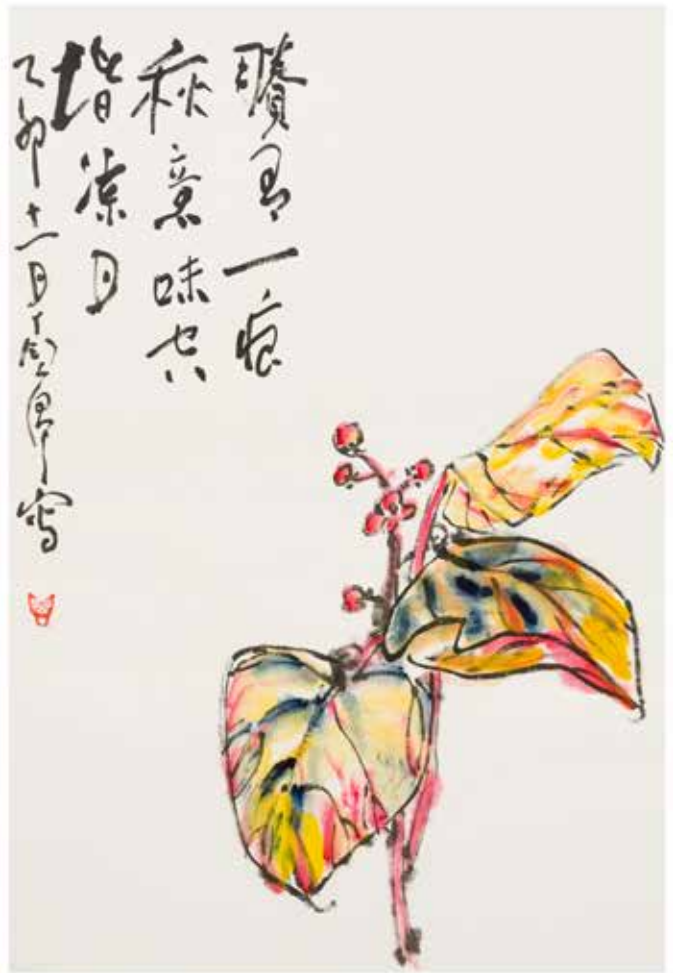 賸有一痕
秋意味空
堦涼月
乙卯十一月丁衍庸寫